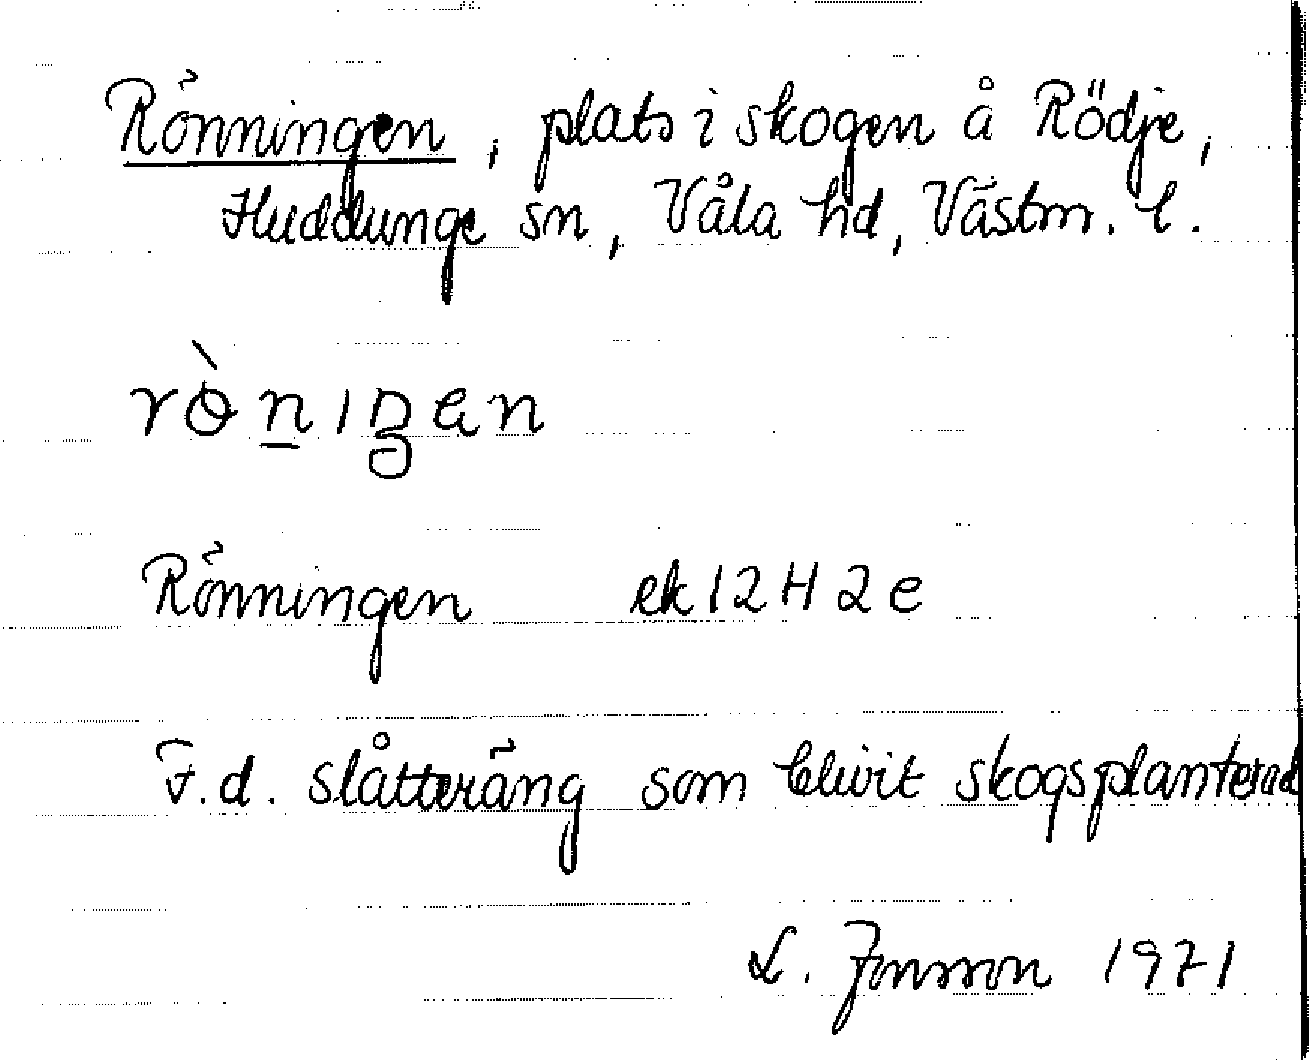 Rönningen, plats i skogen å Rödje,
Huddunge sn, Våla hd, Västm. l.
rö̀nıŋen
Rönningen ek 12H2e
F.d. slåtteräng som blivit skogsplanterad
L. Jonsson 1971